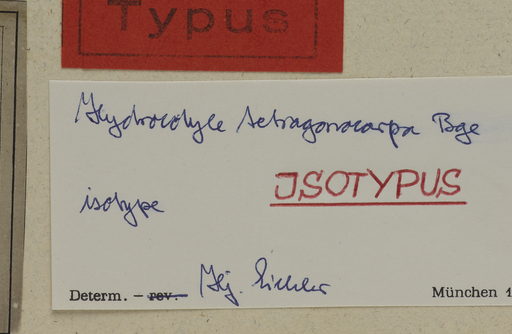 Typus
Hydrocotyle tetragonocarpa Bge
isotype
ISOTYPUS
Determ. - rev. - Hj. Eichler
München 1